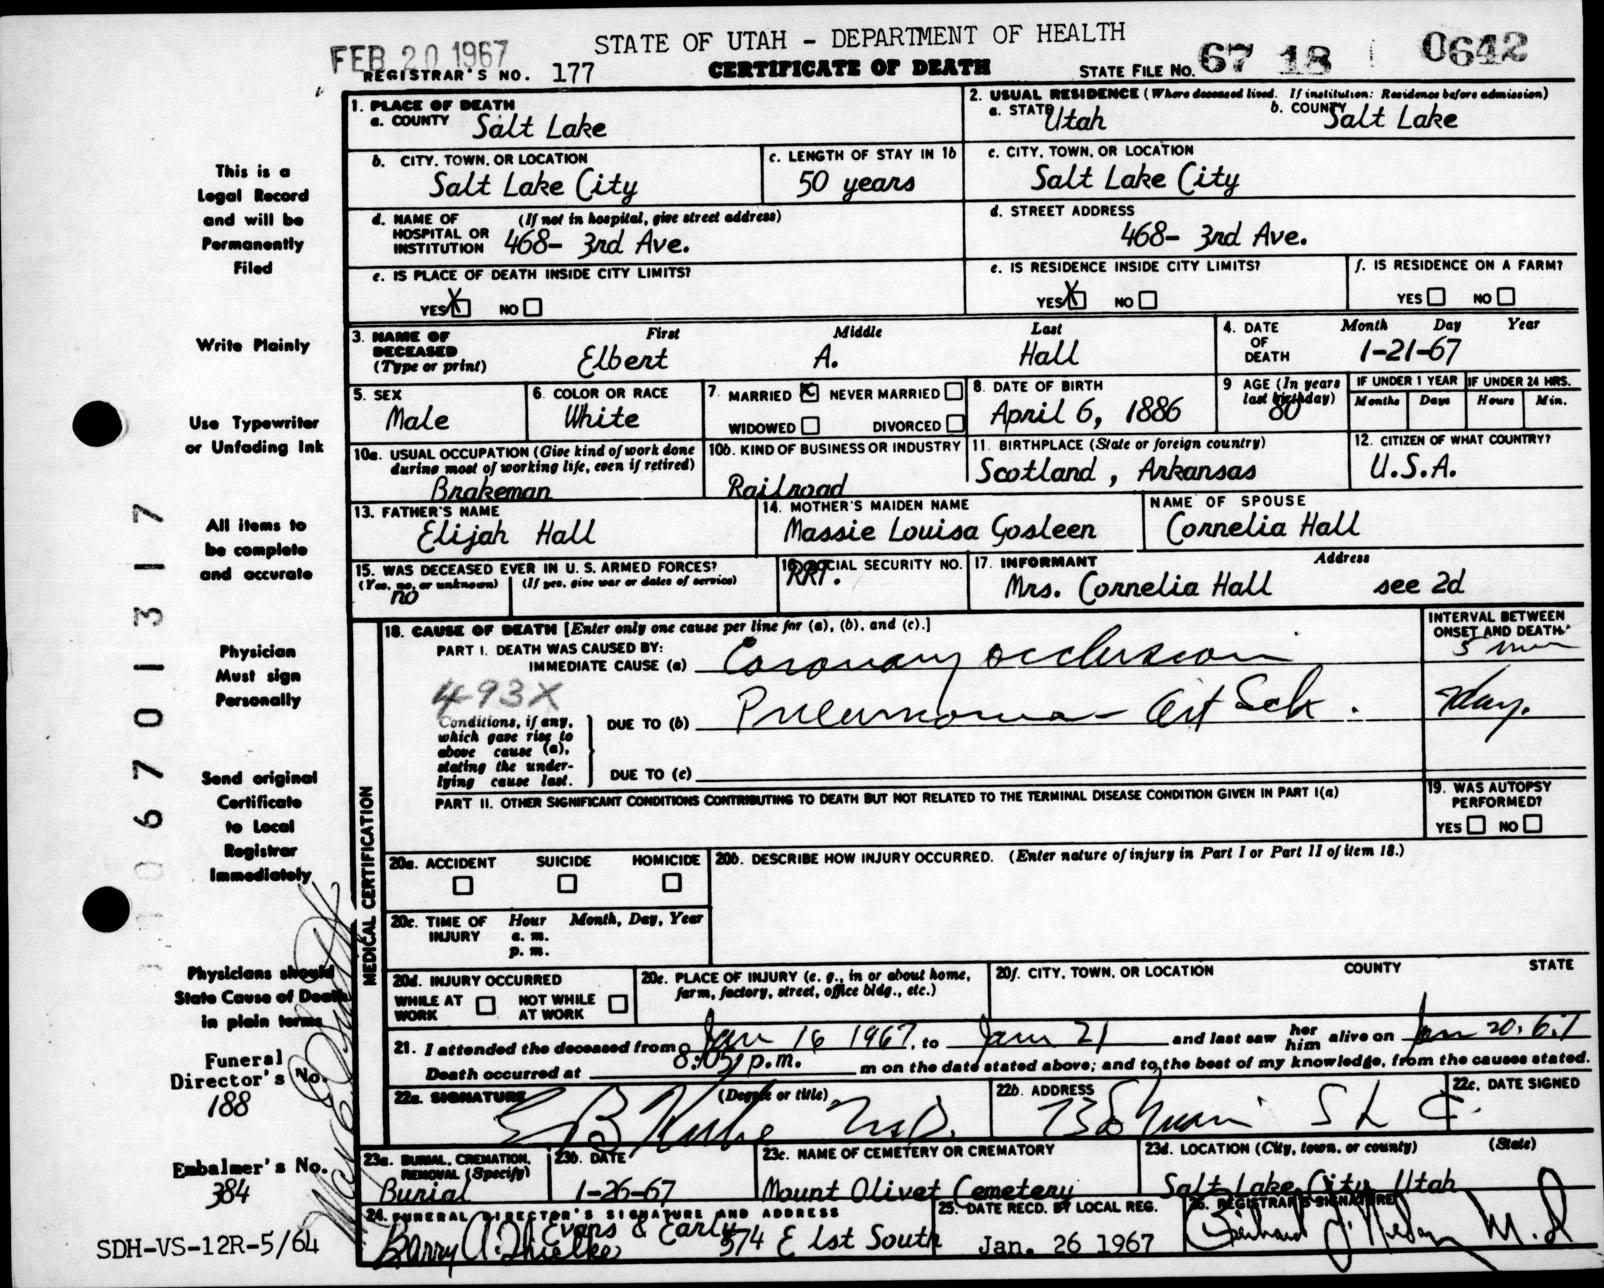 FEB 20 1967
STATE OF UTAH - DEPARTMENT OF HEALTH
REGISTRAR'S NO. 177
CERTIFICATE OF DEATH
STATE FILE NO. 67 18 0642
1. PLACE OF DEATH
a. COUNTY Salt Lake
2. USUAL RESIDENCE (Where deceased lived. If institution: Residence before admission)
a. STATE Utah b. COUNTY Salt Lake
b. CITY, TOWN, OR LOCATION Salt Lake City
c. LENGTH OF STAY IN 1b 50 years
c. CITY, TOWN, OR LOCATION Salt Lake City
d. NAME OF HOSPITAL OR INSTITUTION (If not in hospital, give street address) 468- 3rd Ave.
d. STREET ADDRESS 468- 3rd Ave.
e. IS PLACE OF DEATH INSIDE CITY LIMITS?
YES X NO
e. IS RESIDENCE INSIDE CITY LIMITS?
YES X NO
f. IS RESIDENCE ON A FARM?
YES NO
3. NAME OF DECEASED (Type or print)
First Middle Last
Elbert A. Hall
4. DATE OF DEATH Month Day Year
1-21-67
5. SEX Male
6. COLOR OR RACE White
7. MARRIED X NEVER MARRIED
WIDOWED DIVORCED
8. DATE OF BIRTH April 6, 1886
9 AGE (In years last birthday) 80
IF UNDER 1 YEAR Months Days
IF UNDER 24 HRS. Hours Min.
10a. USUAL OCCUPATION (Give kind of work done during most of working life, even if retired)
Brakeman
10b. KIND OF BUSINESS OR INDUSTRY
Railroad
11. BIRTHPLACE (State or foreign country)
Scotland, Arkansas
12. CITIZEN OF WHAT COUNTRY?
U.S.A.
13. FATHER'S NAME
Elijah Hall
14. MOTHER'S MAIDEN NAME
Massie Louisa Gosleen
NAME OF SPOUSE
Cornelia Hall
15. WAS DECEASED EVER IN U. S. ARMED FORCES?
(Yes, no, or unknown) (If yes, give war or dates of service)
no
16. SOCIAL SECURITY NO.
RRT.
17. INFORMANT Address
Mrs. Cornelia Hall see 2d
18. CAUSE OF DEATH [Enter only one cause per line for (a), (b), and (c).]
INTERVAL BETWEEN ONSET AND DEATH
PART I. DEATH WAS CAUSED BY:
IMMEDIATE CAUSE (a) Coronary occlusion 5 min
493X
Conditions, if any, which gave rise to above cause (a), stating the underlying cause last.
DUE TO (b) Pneumonia - Art Scle.
DUE TO (c)
PART II. OTHER SIGNIFICANT CONDITIONS CONTRIBUTING TO DEATH BUT NOT RELATED TO THE TERMINAL DISEASE CONDITION GIVEN IN PART I(a)
19. WAS AUTOPSY PERFORMED?
YES NO
MEDICAL CERTIFICATION
20a. ACCIDENT SUICIDE HOMICIDE
20b. DESCRIBE HOW INJURY OCCURRED. (Enter nature of injury in Part I or Part II of item 18.)
20c. TIME OF INJURY Hour Month, Day, Year
a. m.
p. m.
20d. INJURY OCCURRED
WHILE AT WORK NOT WHILE AT WORK
20e. PLACE OF INJURY (e. g., in or about home, farm, factory, street, office bldg., etc.)
20f. CITY, TOWN, OR LOCATION COUNTY STATE
21. I attended the deceased from Jan 16 1967, to Jan 21 and last saw her him alive on Jan 20, 67
Death occurred at 8:05 p.m. m on the date stated above; and to the best of my knowledge, from the causes stated.
22a. SIGNATURE (Degree or title) M.D.
22b. ADDRESS S L C.
22c. DATE SIGNED
23a. BURIAL, CREMATION, REMOVAL (Specify)
Burial
23b. DATE
1-26-67
23c. NAME OF CEMETERY OR CREMATORY
Mount Olivet Cemetery
23d. LOCATION (City, town, or county) (State)
Salt Lake City, Utah
24. FUNERAL DIRECTOR'S SIGNATURE AND ADDRESS
Evans & Early 574 E 1st South
Barry A. Thielke
25. DATE RECD. BY LOCAL REG.
Jan. 26 1967
26. REGISTRAR'S SIGNATURE
M.D
This is a
Legal Record
and will be
Permanently
Filed
Write Plainly
Use Typewriter
or Unfading Ink
All items to
be complete
and accurate
Physician
Must sign
Personally
Send original
Certificate
to Local
Registrar
Immediately
Physicians should
State Cause of Death
in plain terms
Funeral
Director's No.
188
Embalmer's No.
384
SDH-VS-12R-5/64
006701317